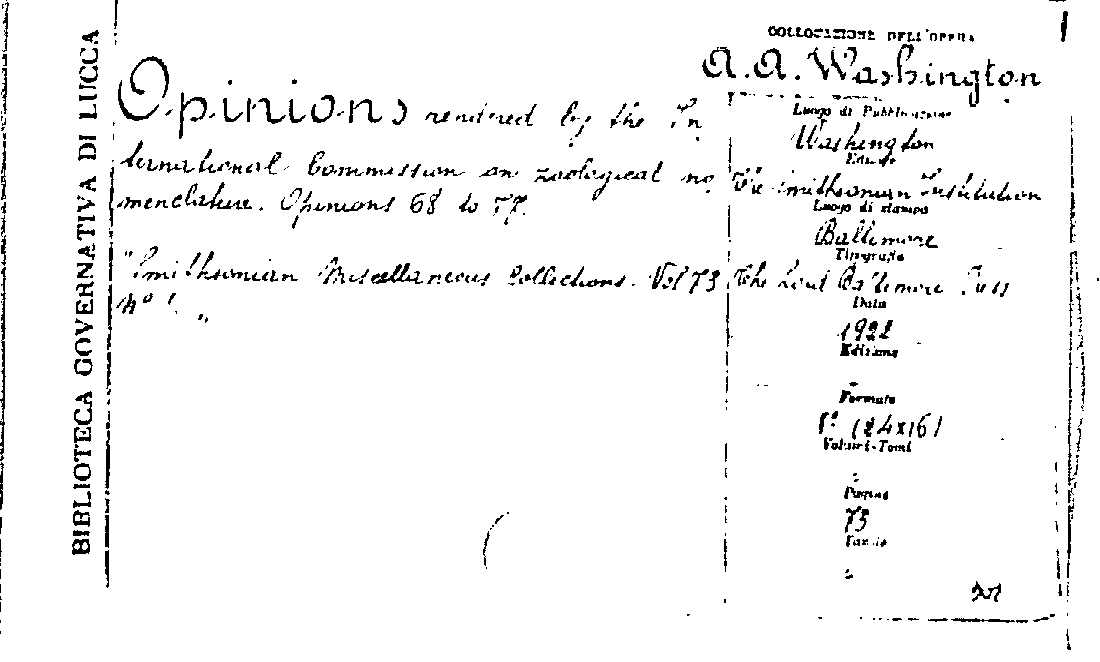 BIBLIOTECA GOVERNATIVA DI LUCCA
COLLOCAZIONE DELL'OPERA
A.A. Washington
Opinions rendered by the In
ternational Commission on zoological no
menclature. Opinions 68 to 77.
"Smithsonian Miscellaneous Collections. Vol 73
N° 1. "
Luogo di Pubblicazione
Washington
Editore
The Smithsonian Institution
Luogo di stampa
Baltimore
Tipografia
The Lord Baltimore Press
Data
1922
Edizione
Formato
8° (24x16)
Volumi-Tomi
Pagine
73
Tavole